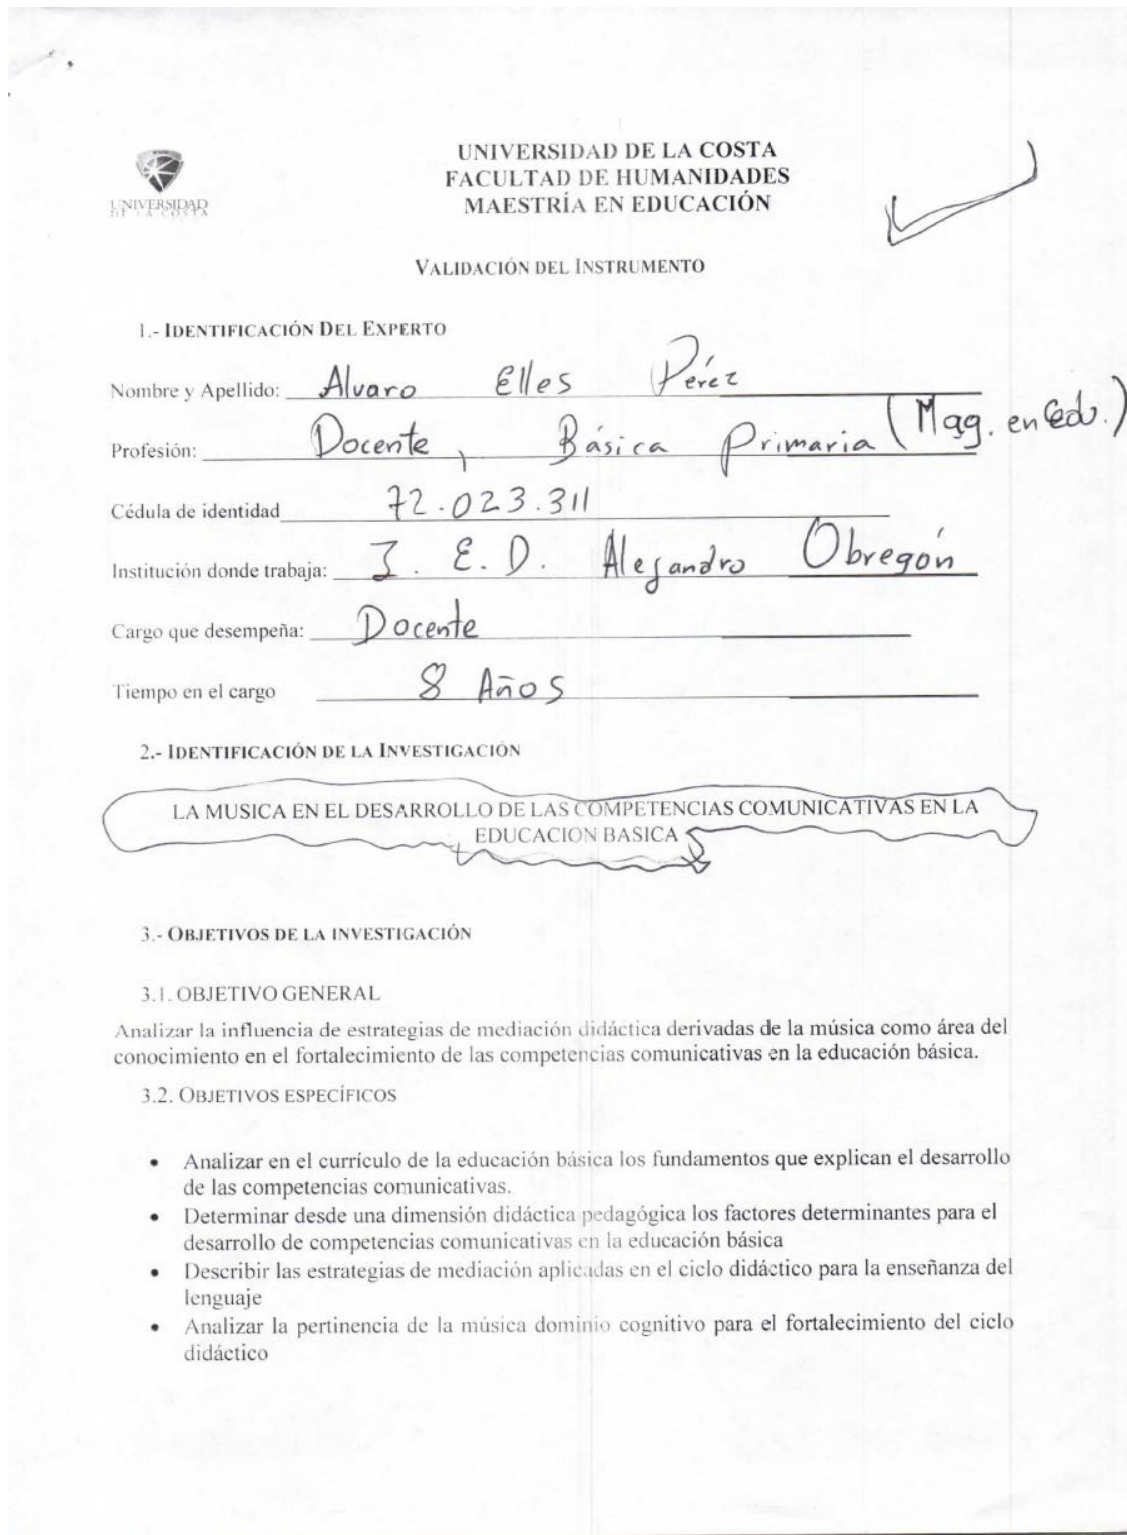 UNIVERSIDAD DE LA COSTA
FACULTAD DE HUMANIDADES
MAESTRÍA EN EDUCACIÓN
UNIVERSIDAD
DE LA COSTA
VALIDACIÓN DEL INSTRUMENTO
1.- IDENTIFICACIÓN DEL EXPERTO
Nombre y Apellido: Alvaro Elles Pérez
Profesión: Docente, Básica primaria (Mag. en Edu.)
Cédula de identidad 72.023.311
Institución donde trabaja: I. E. D. Alejandro Obregón
Cargo que desempeña: Docente
Tiempo en el cargo 8 Años
2.- IDENTIFICACIÓN DE LA INVESTIGACIÓN
LA MUSICA EN EL DESARROLLO DE LAS COMPETENCIAS COMUNICATIVAS EN LA
EDUCACION BASICA
3.- OBJETIVOS DE LA INVESTIGACIÓN
3.1. OBJETIVO GENERAL
Analizar la influencia de estrategias de mediación didáctica derivadas de la música como área del
conocimiento en el fortalecimiento de las competencias comunicativas en la educación básica.
3.2. OBJETIVOS ESPECÍFICOS
• Analizar en el currículo de la educación básica los fundamentos que explican el desarrollo
de las competencias comunicativas.
• Determinar desde una dimensión didáctica pedagógica los factores determinantes para el
desarrollo de competencias comunicativas en la educación básica
• Describir las estrategias de mediación aplicadas en el ciclo didáctico para la enseñanza del
lenguaje
• Analizar la pertinencia de la música dominio cognitivo para el fortalecimiento del ciclo
didáctico